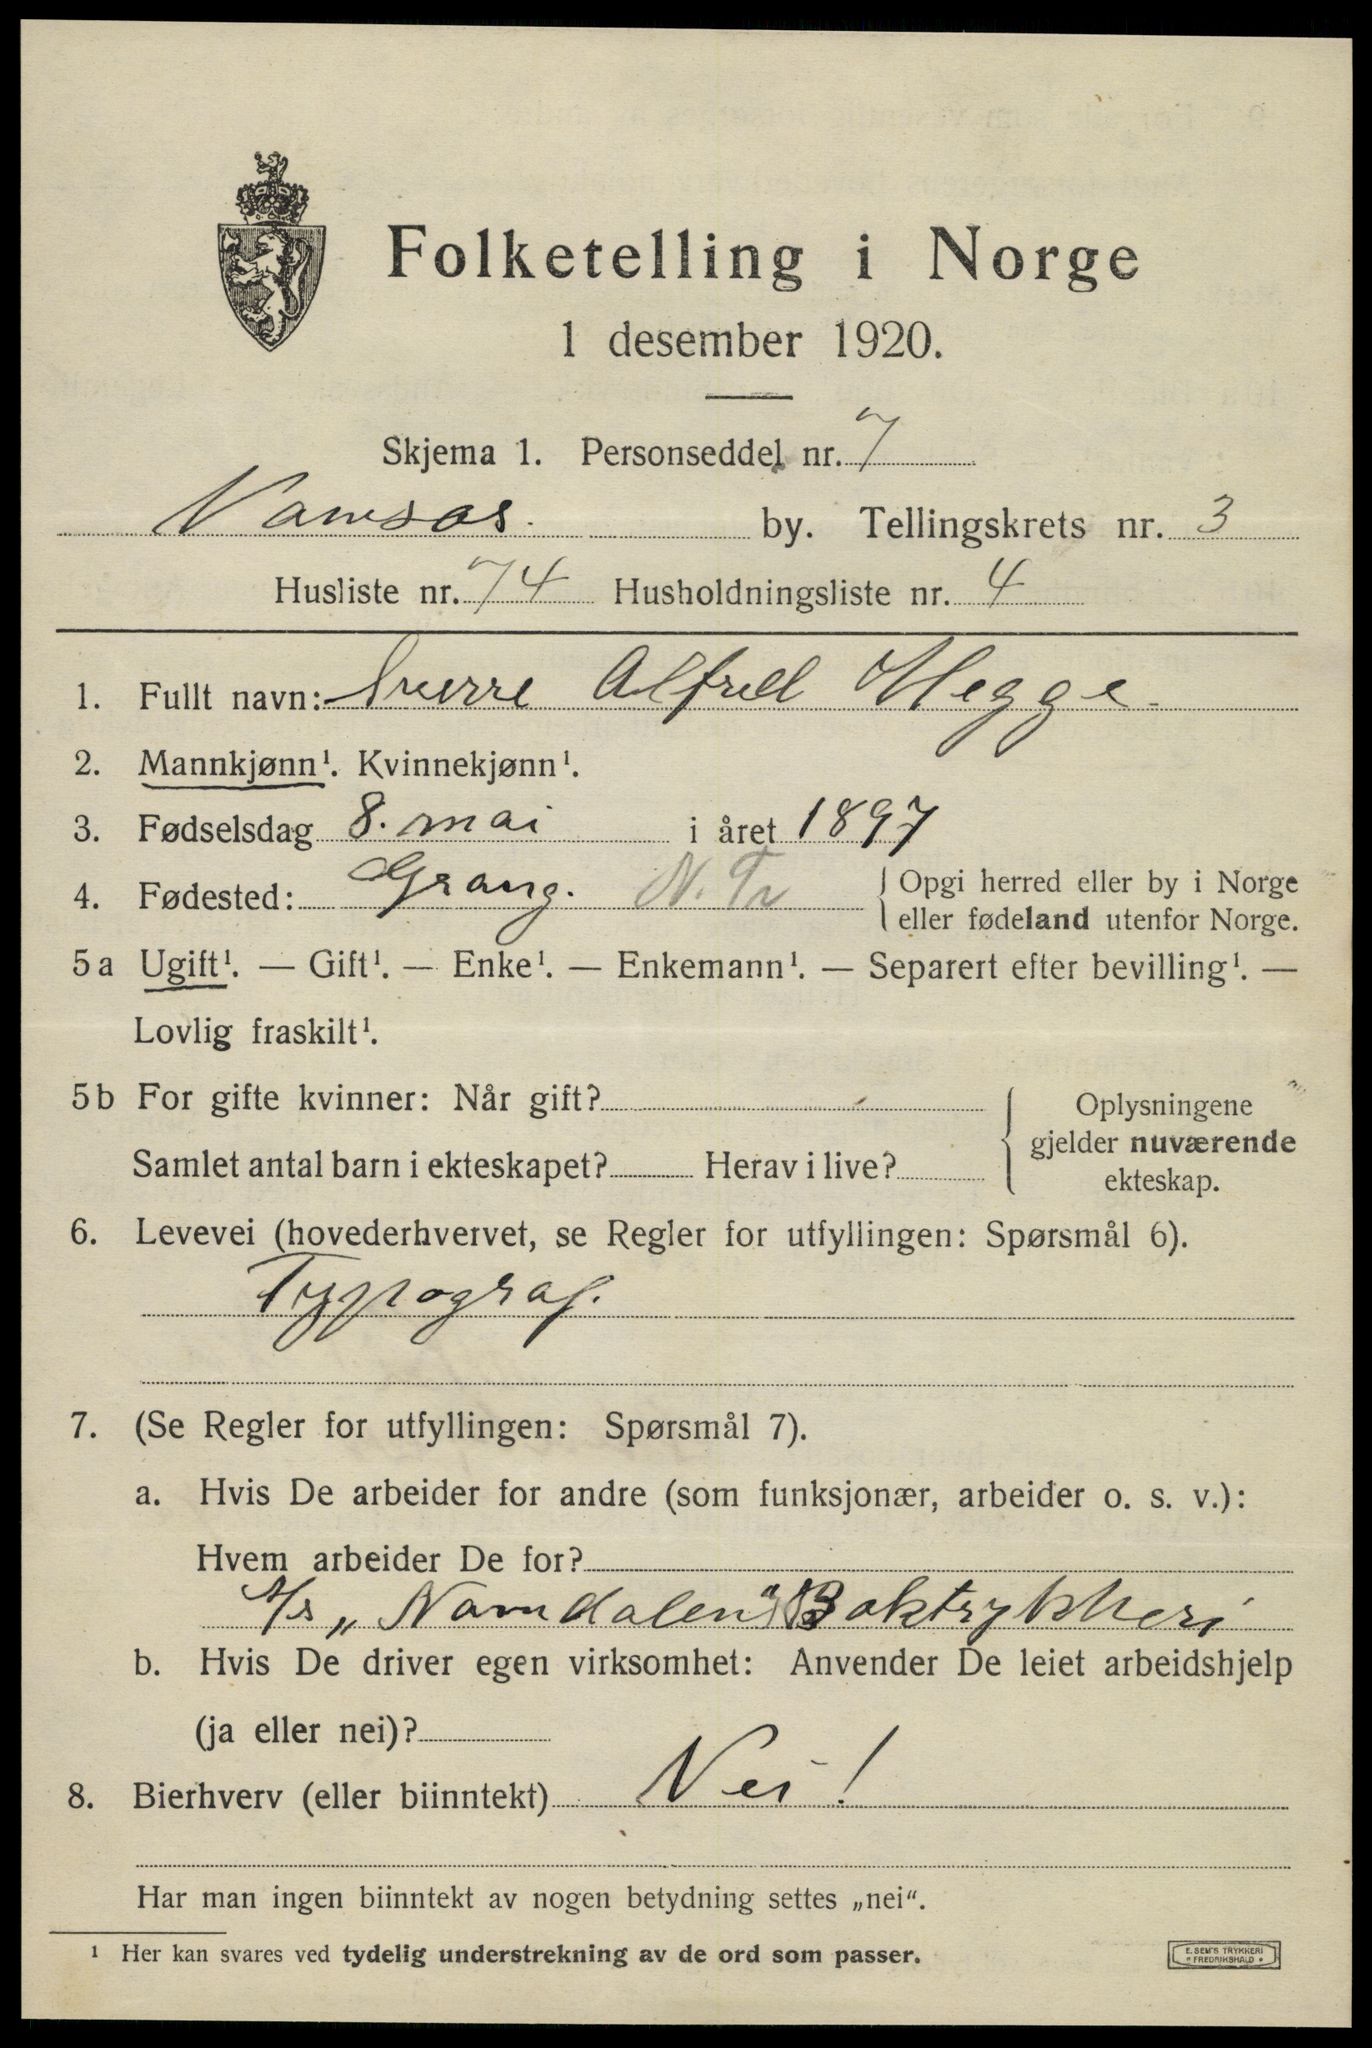 Folketelling i Norge
1 desember 1920.
Skjema 1. Personseddel nr. 7
Namsos. by. Tellingskrets nr. 3
Husliste nr. 74 Husholdningsliste nr. 4
1. Fullt navn: Sverre Alfred Hegge.
2. Mannkjønn¹. Kvinnekjønn¹.
3. Fødselsdag 8. mai i året 1897
4. Fødested: Grong. N. Tr { Opgi herred eller by i Norge
eller fødeland utenfor Norge.
5a Ugift¹. — Gift¹. — Enke¹. — Enkemann¹. — Separert efter bevilling¹. —
Lovlig fraskilt¹.
5b For gifte kvinner: Når gift?
Samlet antal barn i ekteskapet? Herav i live?
{ Oplysningene
gjelder nuværende
ekteskap.
6. Levevei (hovederhvervet, se Regler for utfyllingen: Spørsmål 6).
Typograf.
7. (Se Regler for utfyllingen: Spørsmål 7).
a. Hvis De arbeider for andre (som funksjonær, arbeider o. s. v.):
Hvem arbeider De for?
A/s „Namdalens" Boktrykkeri
b. Hvis De driver egen virksomhet: Anvender De leiet arbeidshjelp
(ja eller nei)?
8. Bierhverv (eller biinntekt) Nei!
Har man ingen biinntekt av nogen betydning settes „nei“.
¹ Her kan svares ved tydelig understrekning av de ord som passer.
E. SEM'S TRYKKERI
* FREDRIKSHALD *